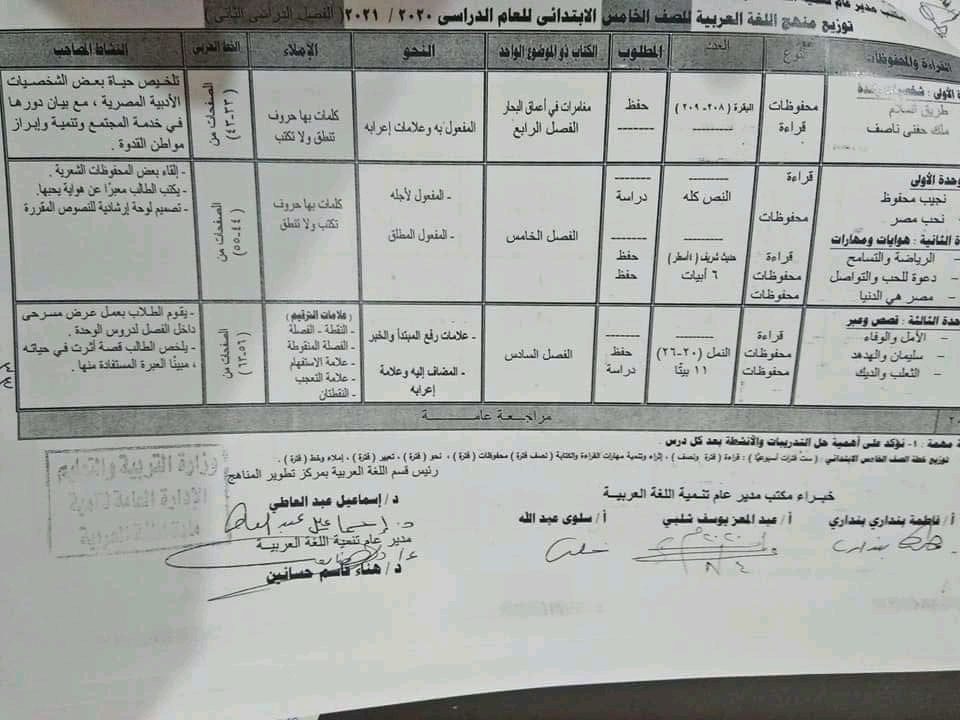 مكتب مدير عام تنمية
توزيع منهج اللغة العربية للصف الخامس الابتدائى للعام الدراسى ٢٠٢٠ / ٢٠٢١ ( الفصل الدراسى الثانى )
القراءة والمحفوظات
نوع
العدد
المطلوب
الكتاب ذو الموضوع الواحد
النحو
الإملاء
الخط العربى
النشاط المصاحب
طريق السلام
ملك حفنى ناصف
محفوظات
قراءة
البقرة (٢٠٨-٢٠٩)
--------
حفظ
-------
مغامرات في أعماق البحار
الفصل الرابع
المفعول به وعلامات إعرابه
كلمات بها حروف
تنطق ولا تكتب
الصفحات من
(٣٣-٤٣)
تلخيص حياة بعض الشخصيات
الأدبية المصرية ، مع بيان دورها
في خدمة المجتمع وتنمية وإبراز
مواطن القدوة .
وحدة الأولى
نجيب محفوظ
نحب مصر
ة الثانية : هوايات ومهارات
الرياضة والتسامح –
دعوة للحب والتواصل –
مصر هي الدنيا –
قراءة
محفوظات
قراءة
محفوظات
محفوظات
--------
النص كله
--------
حديث شريف (٤أسطر)
٦ أبيات
-------
دراسة
-------
حفظ
حفظ
الفصل الخامس
- المفعول لأجله
- المفعول المطلق
كلمات بها حروف
تكتب ولا تنطق
الصفحات من
(٤٤-٥٥)
- إلقاء بعض المحفوظات الشعرية .
- يكتب الطالب معبرًا عن هواية يحبها.
- تصميم لوحة إرشادية للنصوص المقررة
حدة الثالثة : قصص وعبر
الأمل والوفاء –
سليمان والهدهد –
الثعلب والديك –
قراءة
محفوظات
محفوظات
--------
النمل (٢٠-٢٦)
١١ بيتًا
-------
حفظ
دراسة
الفصل السادس
- علامات رفع المبتدأ والخبر
- المضاف إليه وعلامة
إعرابه
(علامات الترقيم)
- النقطة - الفصلة
- الفصلة المنقوطة
- علامة الاستفهام
- علامة التعجب
- النقطتان
الصفحات من
(٥٦-٦٣)
- يقوم الطلاب بعمل عرض مسرحى
داخل الفصل لدروس الوحدة .
- يلخص الطالب قصة أثرت في حياته
، مبينًا العبرة المستفادة منها .
مراجعة عامة
مهمة : ١- نؤكد على أهمية حل التدريبات والأنشطة بعد كل درس .
توزيع خطة الصف الخامس الابتدائي : ( ست فترات أسبوعيًا ) : قراءة ( فترة ونصف ) ، إثراء وتنمية مهارات القراءة والكتابة ( نصف فترة ) محفوظات ( فترة ) ، نحو ( فترة ) ، تعبير ( فترة ) ، إملاء وخط ( فترة ) .
خبراء مكتب مدير عام تنمية اللغة العربية
رئيس قسم اللغة العربية بمركز تطوير المناهج
أ/ فاطمة بنداري بنداري
أ / عبد المعز يوسف شلبي
أ / سلوى عبد الله
د / إسماعيل عبد العاطي
د. إسماعيل عبد العاطي
مدير عام تنمية اللغة العربية
د / هناء قاسم حسانين
وزارة التربية والتعليم
الإدارة العامة لتنمية
اللغة العربية